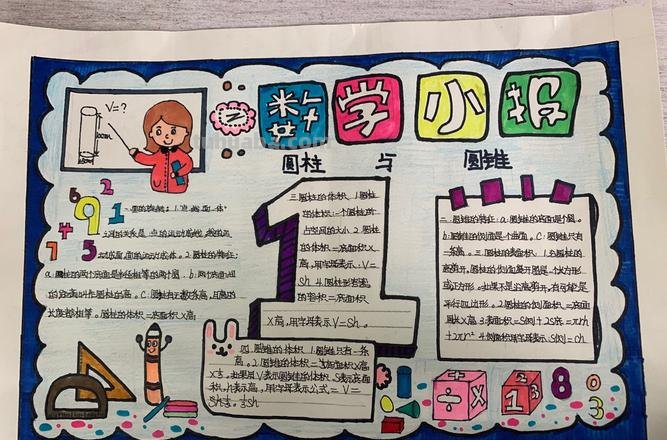 数学小报
圆柱 与 圆锥
V=?
一.面的旋转：1.点 线 面 体
之间的关系是：点的运动成线，线的运
动成面，面的运动成体。2.圆柱的特征：
a.圆柱的两个底面是半径相等的两个圆。b.两个底面间
的距离叫作圆柱的高。C.圆柱有无数条高，且高的
长度都相等。圆柱的体积=底面积×高。
三.圆柱的体积 1.圆柱
的体积：一个圆柱所
占空间的大小 2.圆柱
的体积=底面积×
高。用字母表示：V=
Sh 4.圆柱形容器
的容积=底面积
×高，用字母表示V=Sh。
二.圆锥的特征：a.圆锥的底面是个圆。
b.圆锥的侧面是个曲面。C.圆锥只有
一条高。二.圆柱的表面积 1.沿圆柱的
高剪开，圆柱的侧面展开图是一个长方形
或正方形。如果不是沿高剪开，有可能是
平行四边形。2.圆柱的侧面积=底面
周长×高 3.表面积=S侧+2S底=
+2πr² 4.侧面积用字母表示：S侧=Ch
四.圆锥的体积 1.圆锥只有一条
高。2.圆锥的体积=底面积×高
×⅓。如果用V表示圆锥的体积，S表示底面
积，h表示高，用字母表示公式=V=
Sh×⅓=⅓Sh
9 2 1 7 4 5
÷ × 1 2 3 8 0 3